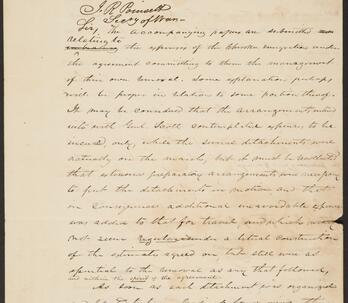 J. R. Poinsett
Secy of War
Sir, The accompanying papers are submitted
relating to
the expenses of the Cherokee emigration under
the agreement committing to them the management
of their own removal. Some explanation perhaps
will be proper in relation to some portion thereof.
It may be considered that the arrangements made
with Genl. Scott contemplated expenses to be
incurred, only, while the several detachments were
actually on the march, but it must be recollected
that extensive preparatory arrangements were necessary
to put the detachments in motion and that
in consequence additional unavoidable expense
was added to that for travel and which may
not seem regular under a literal construction
of the estimate agreed on, but still were as
essential to the removal as any that followed,
and within the spirit of the agreement.
As soon as each detachment was organized